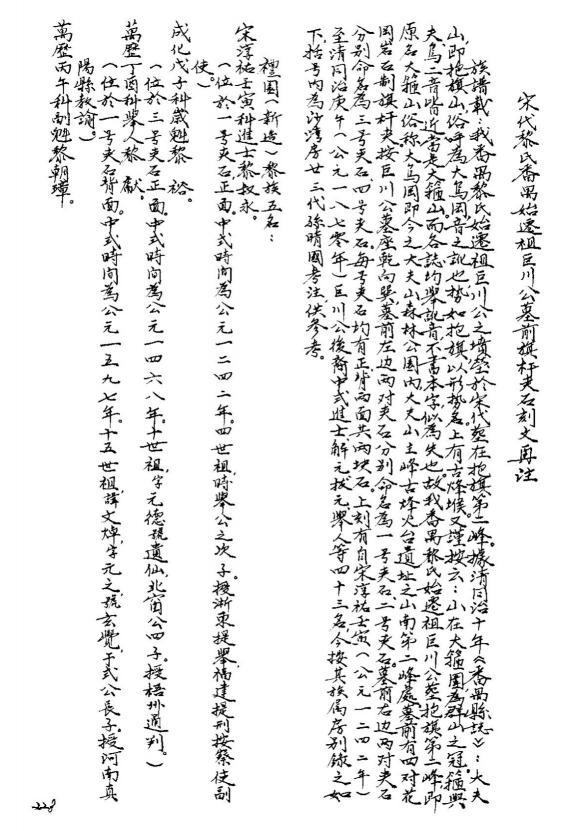 宋代黎氏番禺始遷祖巨川公墓前旗杆夾石刻文再注
族譜載，我番禺黎氏始遷祖巨川公之墳塋於宋代葬在抱旗第二峰。據清同治十年《番禺縣誌》：大夫
山，即抱旗山，俗呼為大烏岡，音之訛也，勢如抱旗，以形勢名。上有古烽堠。又謹按云：山在大箍圍為群山之冠。箍與
夫、烏二音皆近，當是大箍山，而各誌均舉訛音，不著本字，似為失也。故我番禺黎氏始遷祖巨川公葬抱旗第二峰，即
原名大箍山，俗称大烏岡，即今之大夫山森林公園内大夫山主峰古烽火台遺址之山南第二峰處。墓前有四对花
岡岩石制旗杆夾。按巨川公墓座乾向巽，墓前左边两对夾石分别命名為一号夾石、二号夾石。墓前右边两对夾石
分别命名為三号夾石、四号夾石。每号夾石均有正、背两面共两块石。上刻有自宋淳祐壬寅（公元一二四二年）
至清同治庚午（公元一八七零年）巨川公後裔中式進士、解元、拔元、舉人等四十三名。今按其族属房别錄之如
下，括号内為沙灣房廿三代孫晴國考注，供參考。
禮園（新造）黎族五名：
宋淳祐壬寅科進士黎叔永。
（位於一号夾石正面。中式時间為公元一二四二年。四世祖時舉公之次子。授浙東提舉，福建提刑按察使副
使。）
成化戊子科歲魁黎　裕。
（位於三号夾石正面。中式時间為公元一四六八年。十世祖，字元德，號遺仙，北窗公四子。授梧州通判。）
萬歷丁酉科舉人黎　献。
（位於一号夾石背面。中式時间為公元一五九七年。十五世祖，諱文焯，字元之，號玄覺，于式公長子。授河南真
陽縣教諭。）
萬歷丙午科副魁黎朝璋。
228